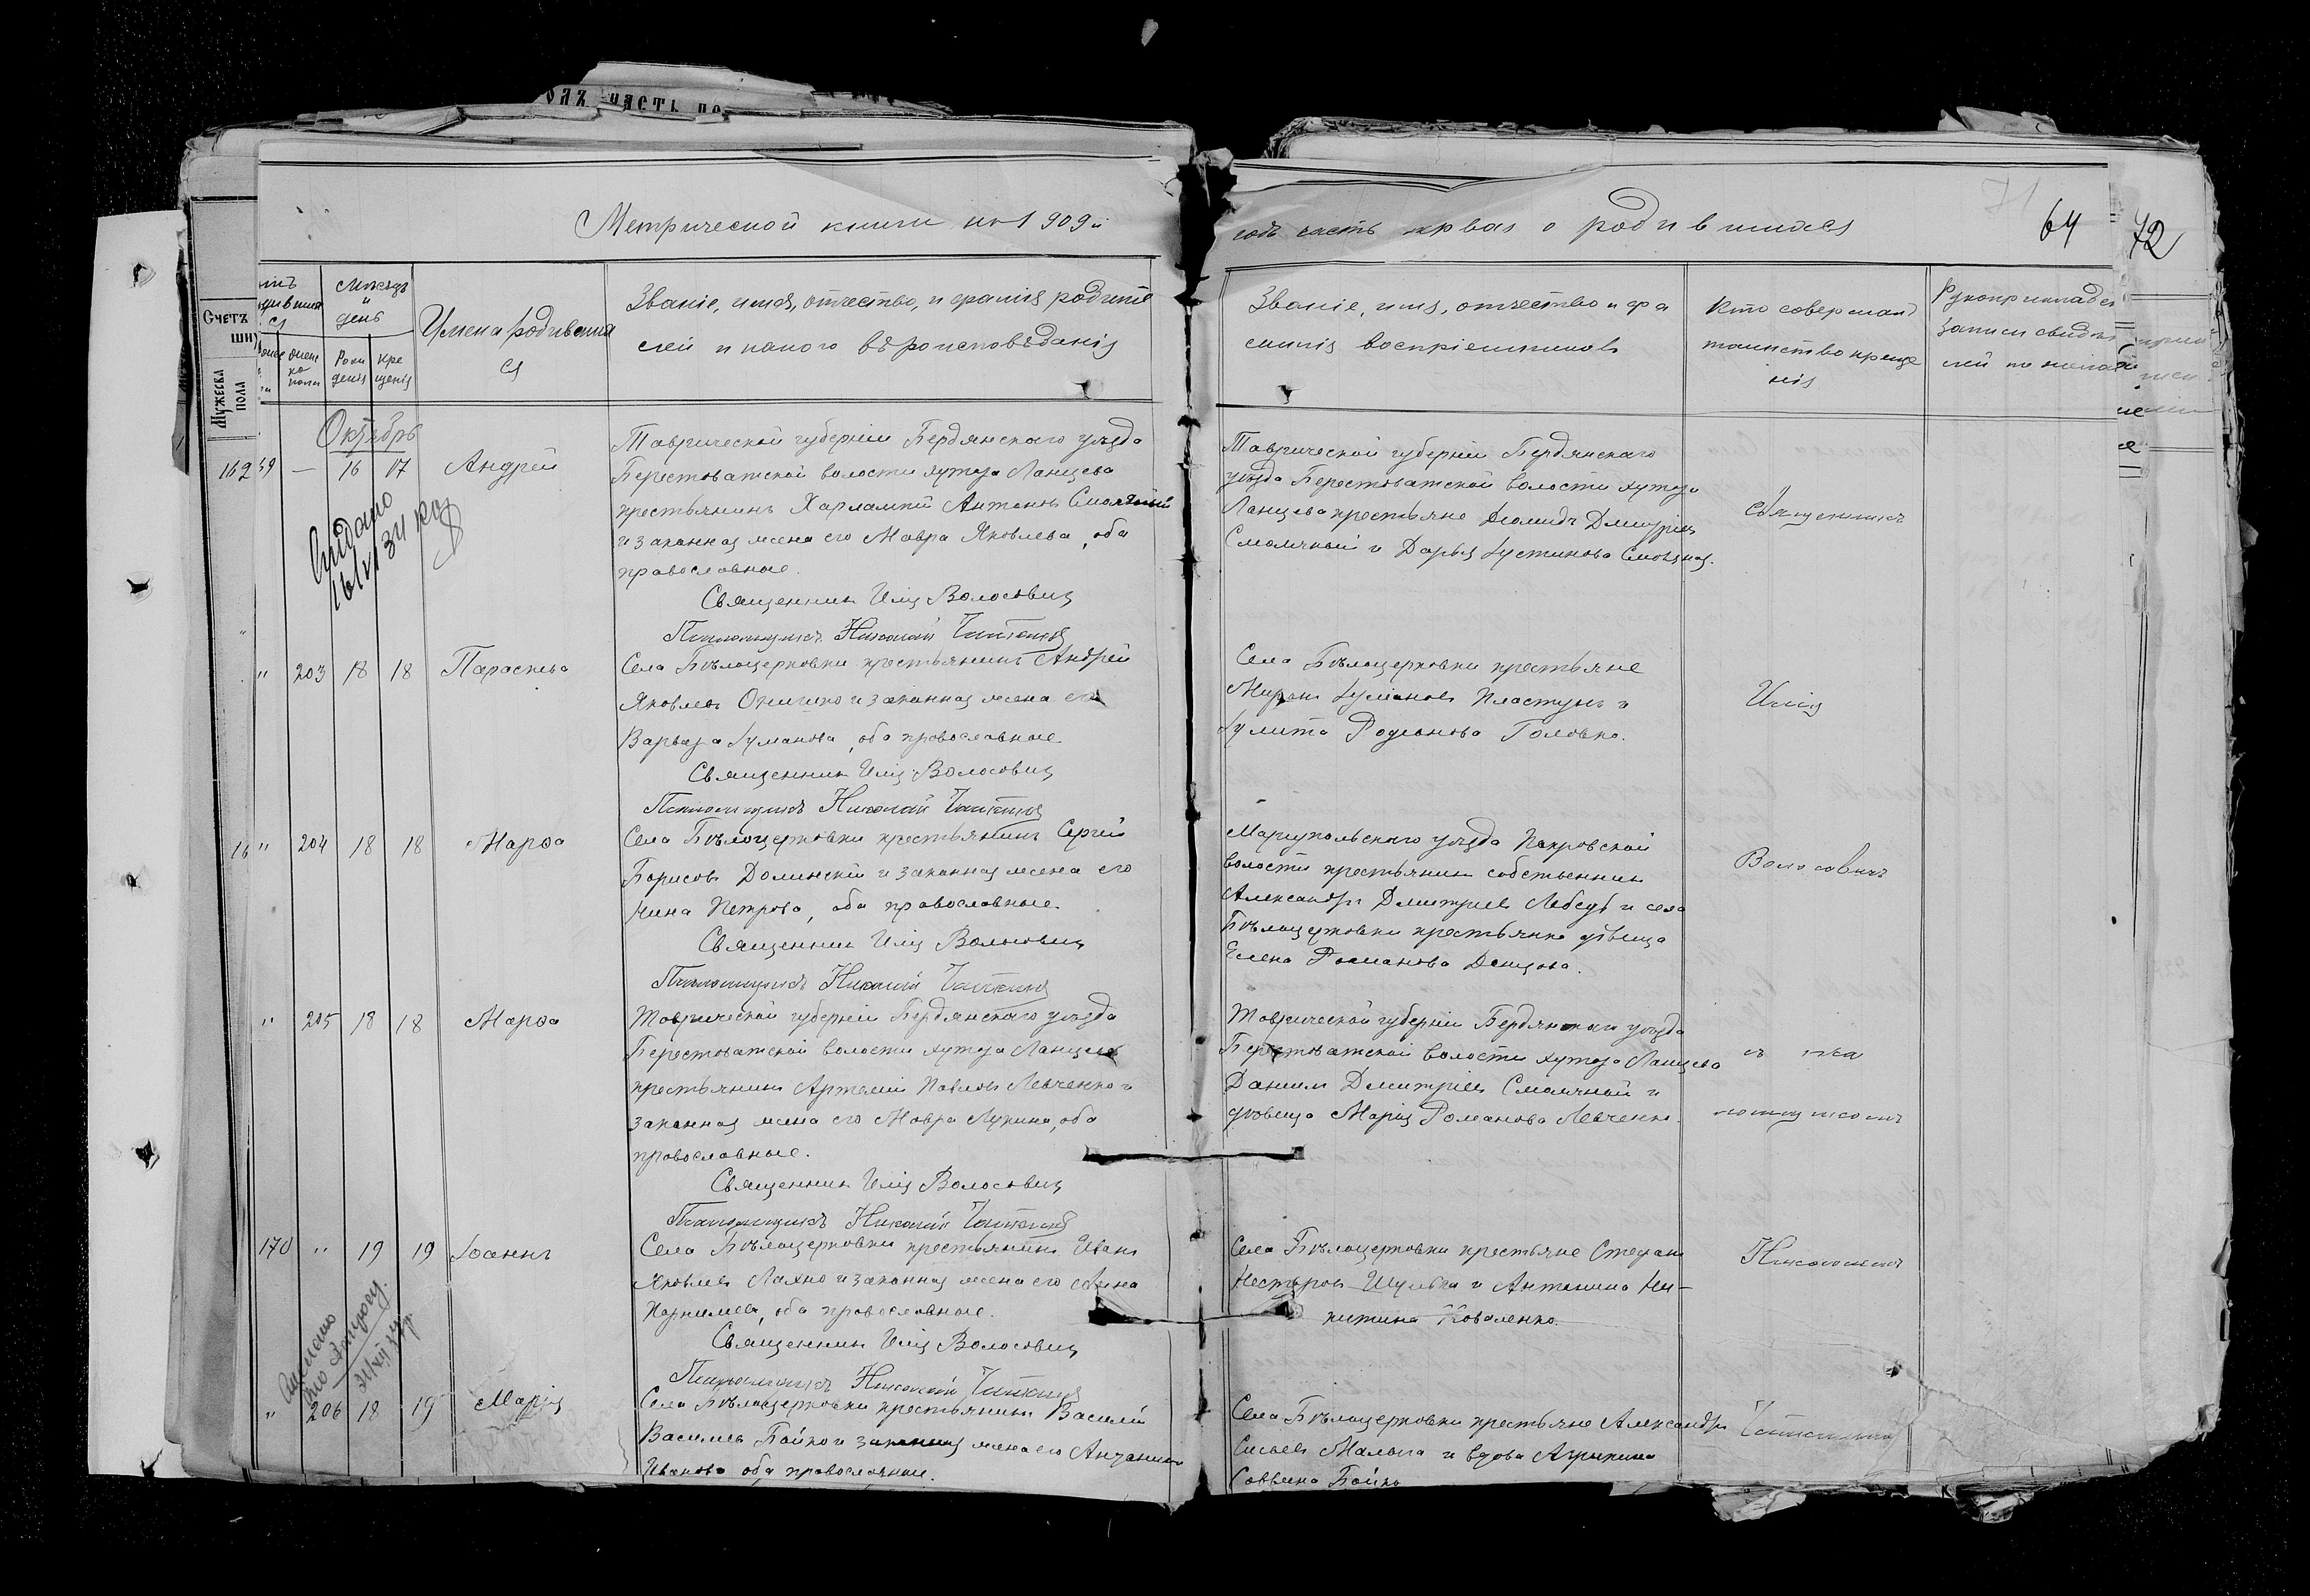 Метрической книги на 1909й
годъ часть первая о родившихся
64
72
Счетъ
Мужеска пола
женска пола
Мѣсяцъ и день
Рожденія
Крещенія
Имена родившихся
Званіе, имя, отчество, и фамилія родителей и какого вѣроисповѣданія
Званіе, имя, отчество и фамилія воспріемниковъ
Кто совершалъ таинство крещенія
Октябрь
169 — 16 17 Андрей
Таврической губерніи Бердянскаго уѣзда
Берестоватской волости хутора Ланцева
крестьянинъ Харлампій Антоновъ Смолячный
и законная жена его Мавра Яковлева, оба
православные.
Священникъ Илія Волосовичъ
Псаломщикъ Николай
Таврической губерніи Бердянскаго
уѣзда Берестоватской волости хутора
Ланцева крестьяне Діомидъ Дмитріевъ
Смолячный и Дарья Іустинова Смолячная.
Священникъ
Выдано
" 203 18 18 Параскева
Села Бѣлоцерковки крестьянинъ Андрей
Яковлевъ Онишко и законная жена его
Варвара Іуліанова, оба православные
Священникъ Илія Волосовичъ
Псаломщикъ Николай
Села Бѣлоцерковки крестьяне
Миронъ Іуліановъ Пластунъ и
Іулита Родіонова Головко.
Илія
" 204 18 18 Марѳа
Села Бѣлоцерковки крестьянинъ Сергій
Борисовъ Долинскій и законная жена его
Нина Петрова, оба православные.
Священникъ Илія Волосовичъ
Псаломщикъ Николай
Маріупольскаго уѣзда Покровской
волости крестьянинъ собственникъ
Александръ Дмитріевъ Лебедь и села
Бѣлоцерковки крестьянка дѣвица
Елена Романова Донцова.
Волосовичъ
" 205 18 18 Марѳа
Таврической губерніи Бердянскаго уѣзда
Берестоватской волости хутора Ланцева
крестьянинъ Артемій Павловъ Левченко и
законная жена его Мавра Лукина, оба
православные.
Священникъ Илія Волосовичъ
Псаломщикъ Николай
Таврической губерніи Бердянскаго уѣзда
Берестоватской волости хутора Ланцева
Даніилъ Дмитріевъ Смолячный и
дѣвица Марія Романова Левченко.
съ пса
ломщикомъ
170 " 19 19 Іоаннъ
Села Бѣлоцерковки крестьянинъ Иванъ
Яковлевъ Лахно и законная жена его Анна
Корнилева, оба православные.
Священникъ Илія Волосовичъ
Псаломщикъ Николай
Села Бѣлоцерковки крестьяне Стефанъ
Несторовъ Шульга и Антонина Ни-
китина Коваленко.
Николаемъ
" 206 18 19 Марія
Села Бѣлоцерковки крестьянинъ Василій
Васильевъ Бойко и законная жена его
Иванова оба православные.
Села Бѣлоцерковки крестьяне Александръ
Мальга и вдова Агрипина
Саввина Бойко